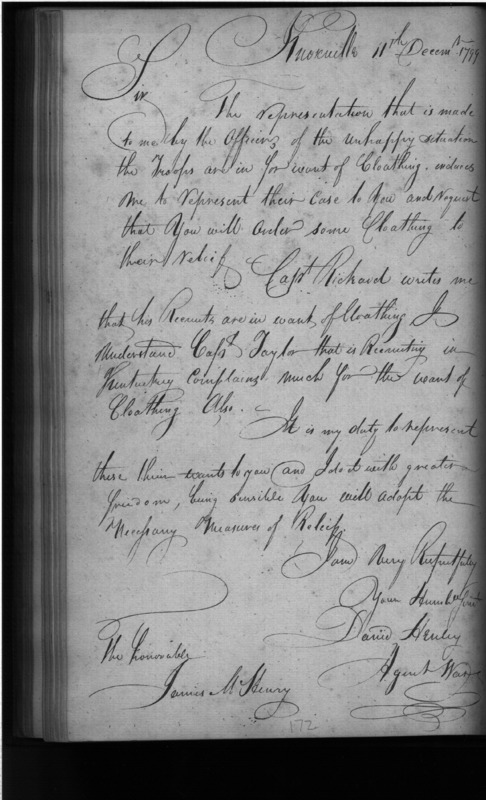 Knoxville 11th Decemr. 1799
Sir
The representation that is made
to me by the Officers of the unhappy situation
the Troops are in for want of Cloathing. induces
me to represent their case to You and request
that You will order some Cloathing to
their relief
Capt Rickard writes me
that his Recruits are in want of Cloathing I
understand Capt Taylor that is Recruiting in
Kentuckey complains much for the want of
Cloathing Also.
It is my duty to represent
these their wants to you and I do it with greater
freedom, being sensible You will adopt the
Necessary Measures of Relief.
I am Very Respectfully
Your Humb
David Henley
Agent War
The honorable
James McHenry
172